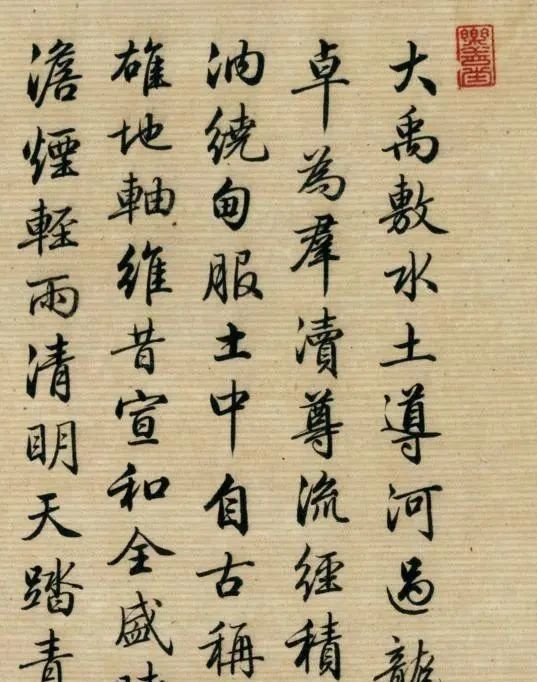 大禹敷水土導河過龍
卓為羣瀆尊流經積
洶繞甸服土中自古稱
雄地軸維昔宣和全盛時
澹煙輕雨清明天踏青